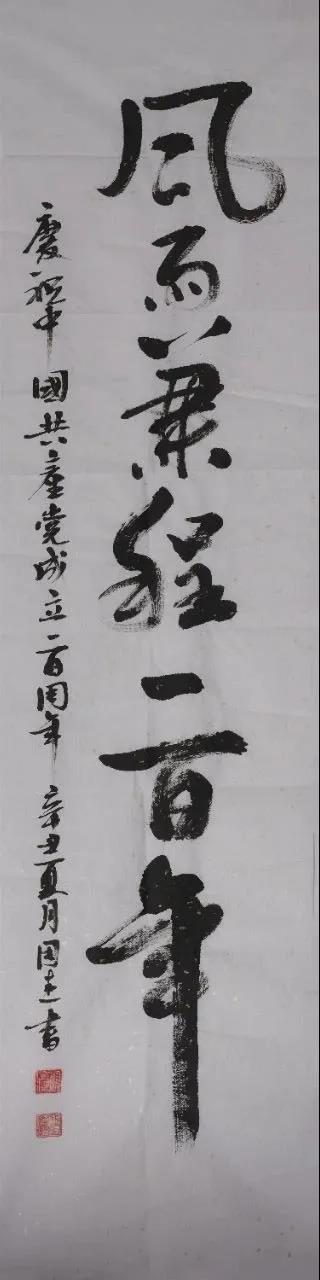 風雨兼程一百年
慶祝中國共產党成立一百周年 辛丑夏月周志書